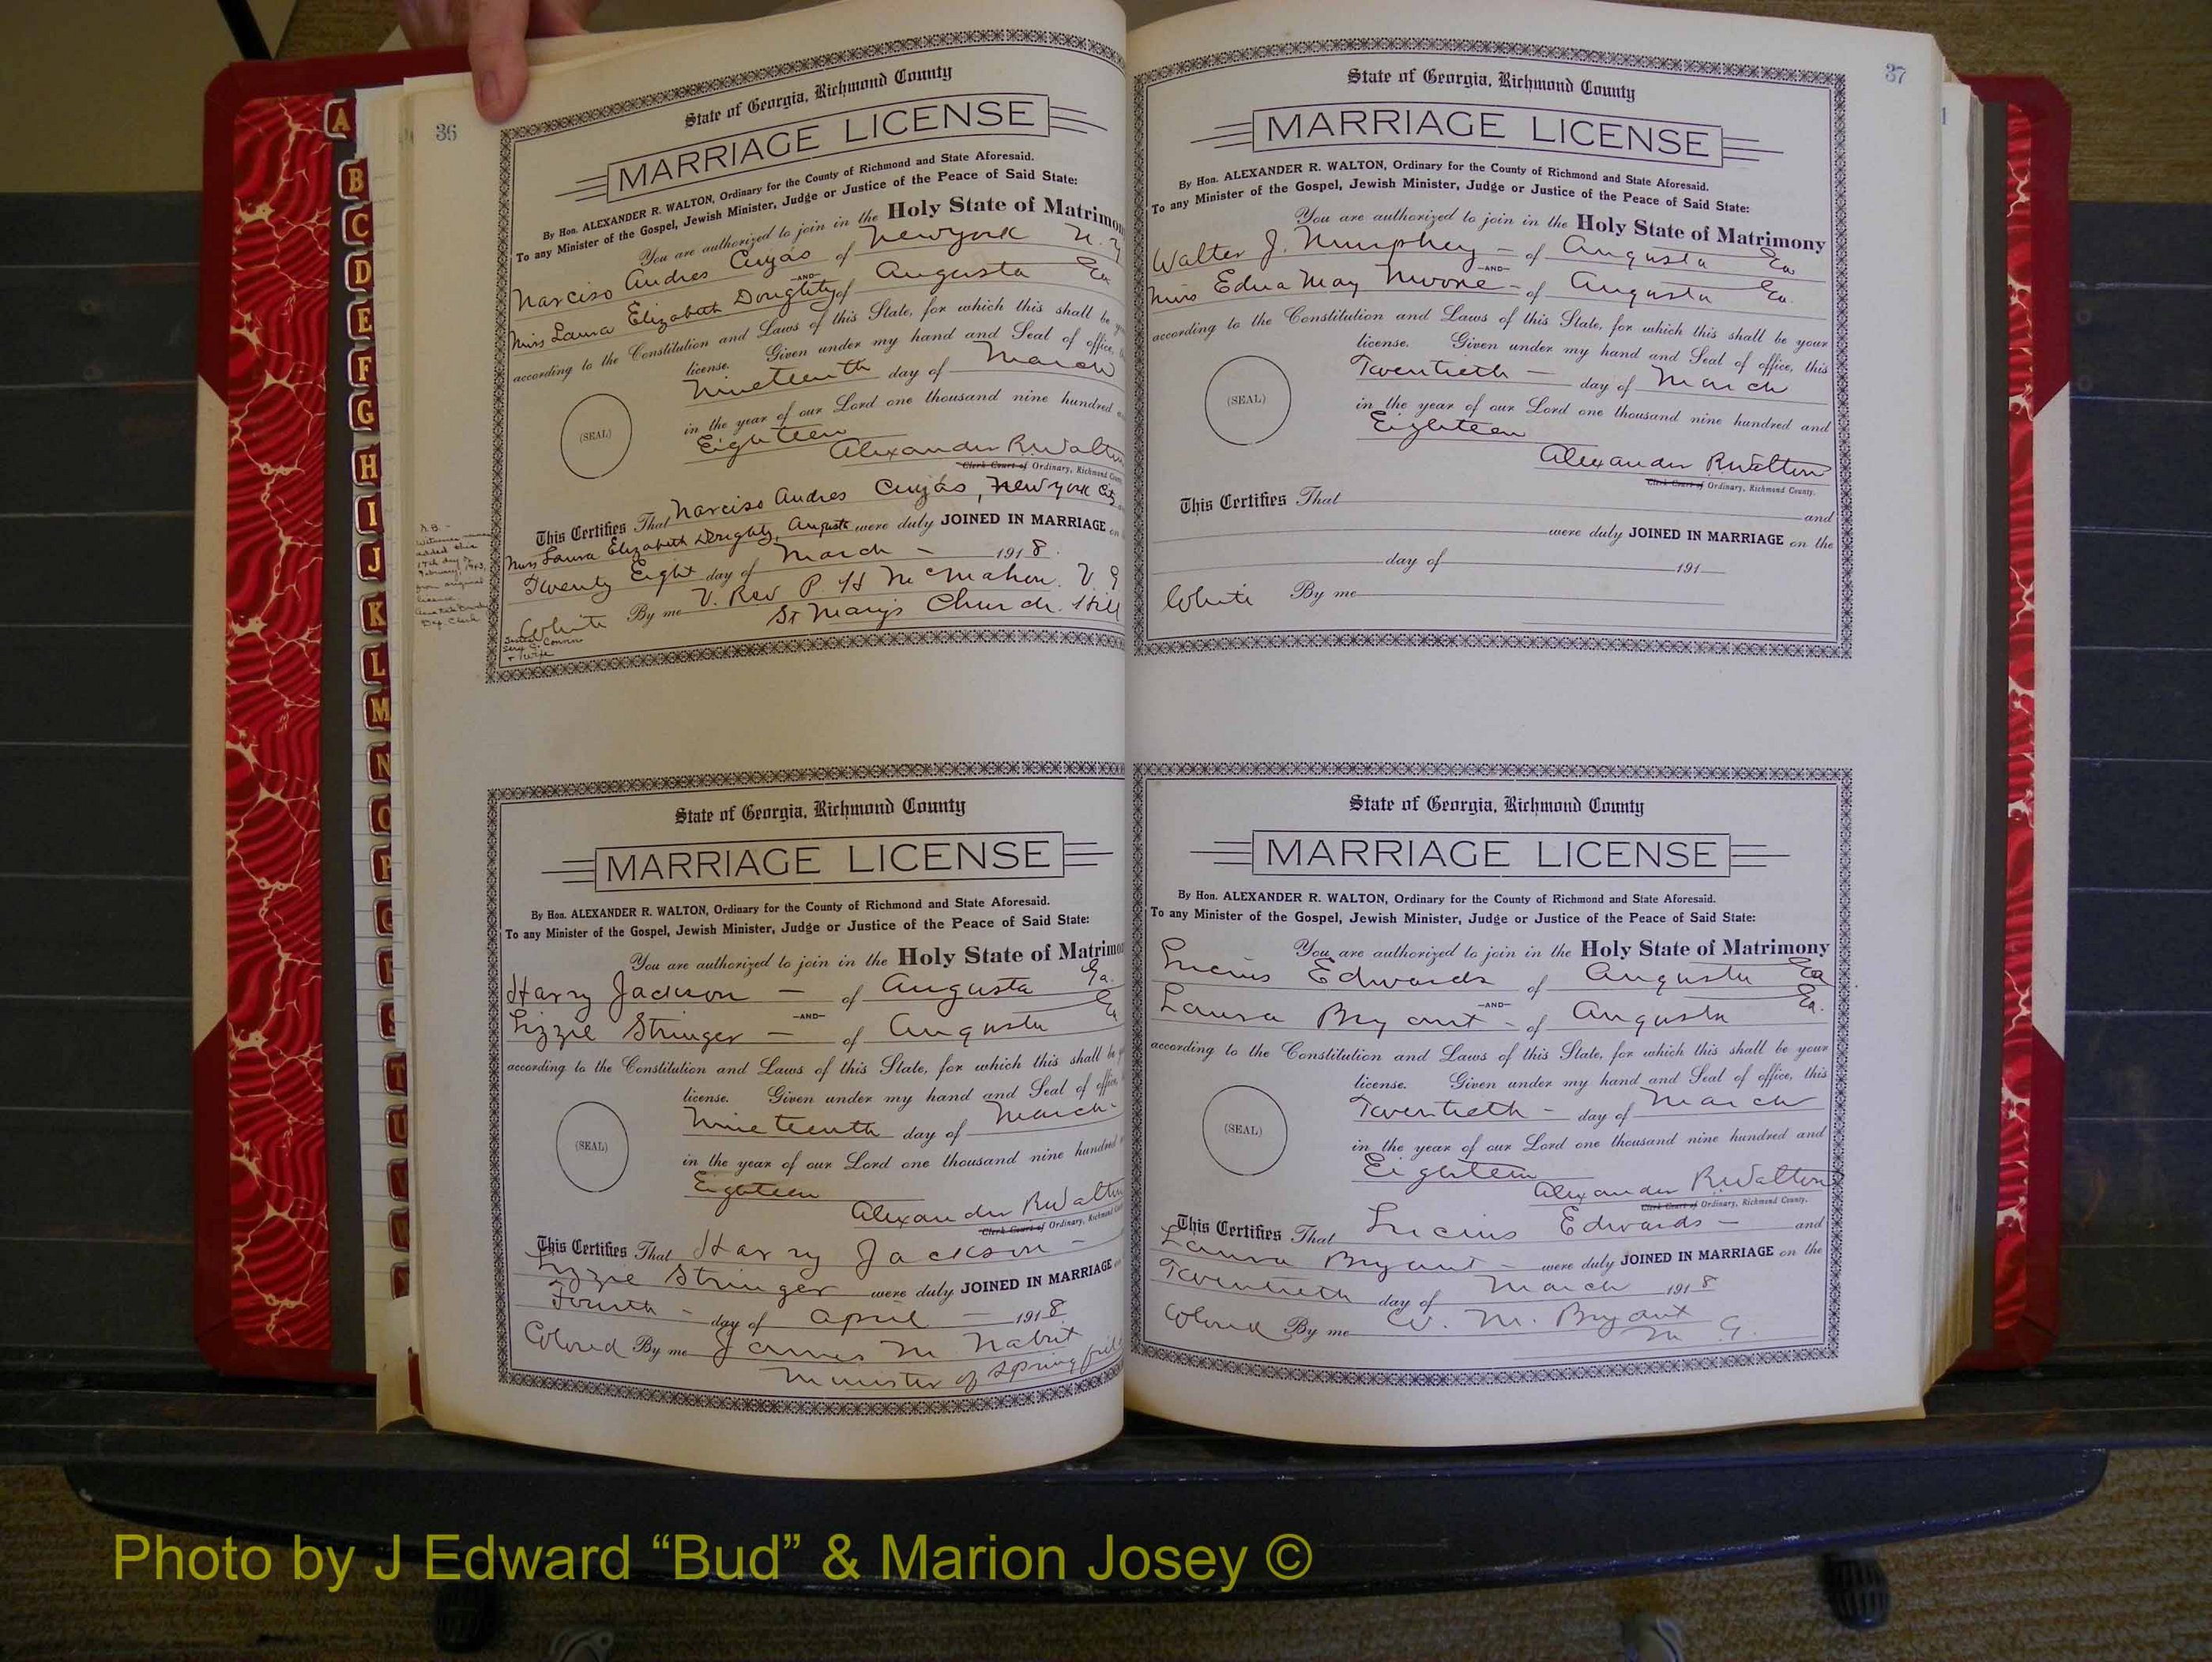 36
State of Georgia, Richmond County
MARRIAGE LICENSE
By Hon. ALEXANDER R. WALTON, Ordinary for the County of Richmond and State Aforesaid.
To any Minister of the Gospel, Jewish Minister, Judge or Justice of the Peace of Said State:
You are authorized to join in the Holy State of Matrimon
Narciso Andres Cuyás of Newyork N. Y
-AND-
Miss Laura Elizabeth Doughty of Augusta Ga
according to the Constitution and Laws of this State, for which this shall be
license. Given under my hand and Seal of office,
Nineteenth day of March
(SEAL)
in the year of our Lord one thousand nine hundred
Eighteen
Alexander R. Walton
Clerk Court of Ordinary, Richmond
This Certifies That Narciso Andres Cuyás, New York City
Miss Laura Elizabeth Doughty, Augusta were duly JOINED IN MARRIAGE on
Twenty Eight day of March - 1918.
White By me V. Rev P H McMahon. V. G
St Mary's Church. Hill
N.B. -
Witness names
added this
17th day of
February, 1943,
from original
license.
Dep. Clerk
Connor
State of Georgia, Richmond County
MARRIAGE LICENSE
By Hon. ALEXANDER R. WALTON, Ordinary for the County of Richmond and State Aforesaid.
To any Minister of the Gospel, Jewish Minister, Judge or Justice of the Peace of Said State:
You are authorized to join in the Holy State of Matrimon
Harry Jackson - of Augusta Ga.
-AND-
Lizzie Stringer - of Augusta Ga
according to the Constitution and Laws of this State, for which this shall be
license. Given under my hand and Seal of office,
Nineteenth day of March-
(SEAL)
in the year of our Lord one thousand nine hundred
Eighteen
Alexander R Walton
Clerk Court of Ordinary, Richmond
This Certifies That Harry Jackson -
Lizzie Stringer were duly JOINED IN MARRIAGE
Fourth - day of April - 1918.
Colored By me James M Nabrit
Minister of Springfield
37
State of Georgia, Richmond County
MARRIAGE LICENSE
By Hon. ALEXANDER R. WALTON, Ordinary for the County of Richmond and State Aforesaid.
To any Minister of the Gospel, Jewish Minister, Judge or Justice of the Peace of Said State:
You are authorized to join in the Holy State of Matrimony
Walter J. Murphey - of Augusta Ga
-AND-
Miss Edna May Moore - of Augusta Ga.
according to the Constitution and Laws of this State, for which this shall be your
license. Given under my hand and Seal of office, this
Twentieth - day of March
(SEAL)
in the year of our Lord one thousand nine hundred and
Eighteen
Alexander R Walton
Clerk Court of Ordinary, Richmond County.
This Certifies That
and
were duly JOINED IN MARRIAGE on the
day of 191
White By me
State of Georgia, Richmond County
MARRIAGE LICENSE
By Hon. ALEXANDER R. WALTON, Ordinary for the County of Richmond and State Aforesaid.
To any Minister of the Gospel, Jewish Minister, Judge or Justice of the Peace of Said State:
You are authorized to join in the Holy State of Matrimony
Lucius Edwards of Augusta Ga
-AND-
Laura Bryant - of Augusta Ga.
according to the Constitution and Laws of this State, for which this shall be your
license. Given under my hand and Seal of office, this
Twentieth - day of March
(SEAL)
in the year of our Lord one thousand nine hundred and
Eighteen
Alexander R Walton
Clerk Court of Ordinary, Richmond County.
This Certifies That Lucius Edwards - and
Laura Bryant - were duly JOINED IN MARRIAGE on the
Twentieth day of March 1918
Colored By me W. M. Bryant
M G.
A
B
C
D
E
F
G
H
I
J
K
L
M
N
O
P
Q
R
S
T
U
V
W
Photo by J Edward “Bud” & Marion Josey ©